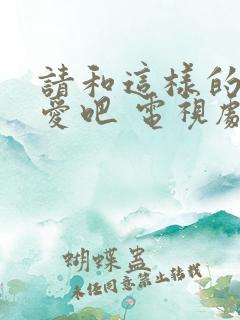 請和這樣的
愛吧 電視劇
蝴蝶蠱
未经同意禁止转载